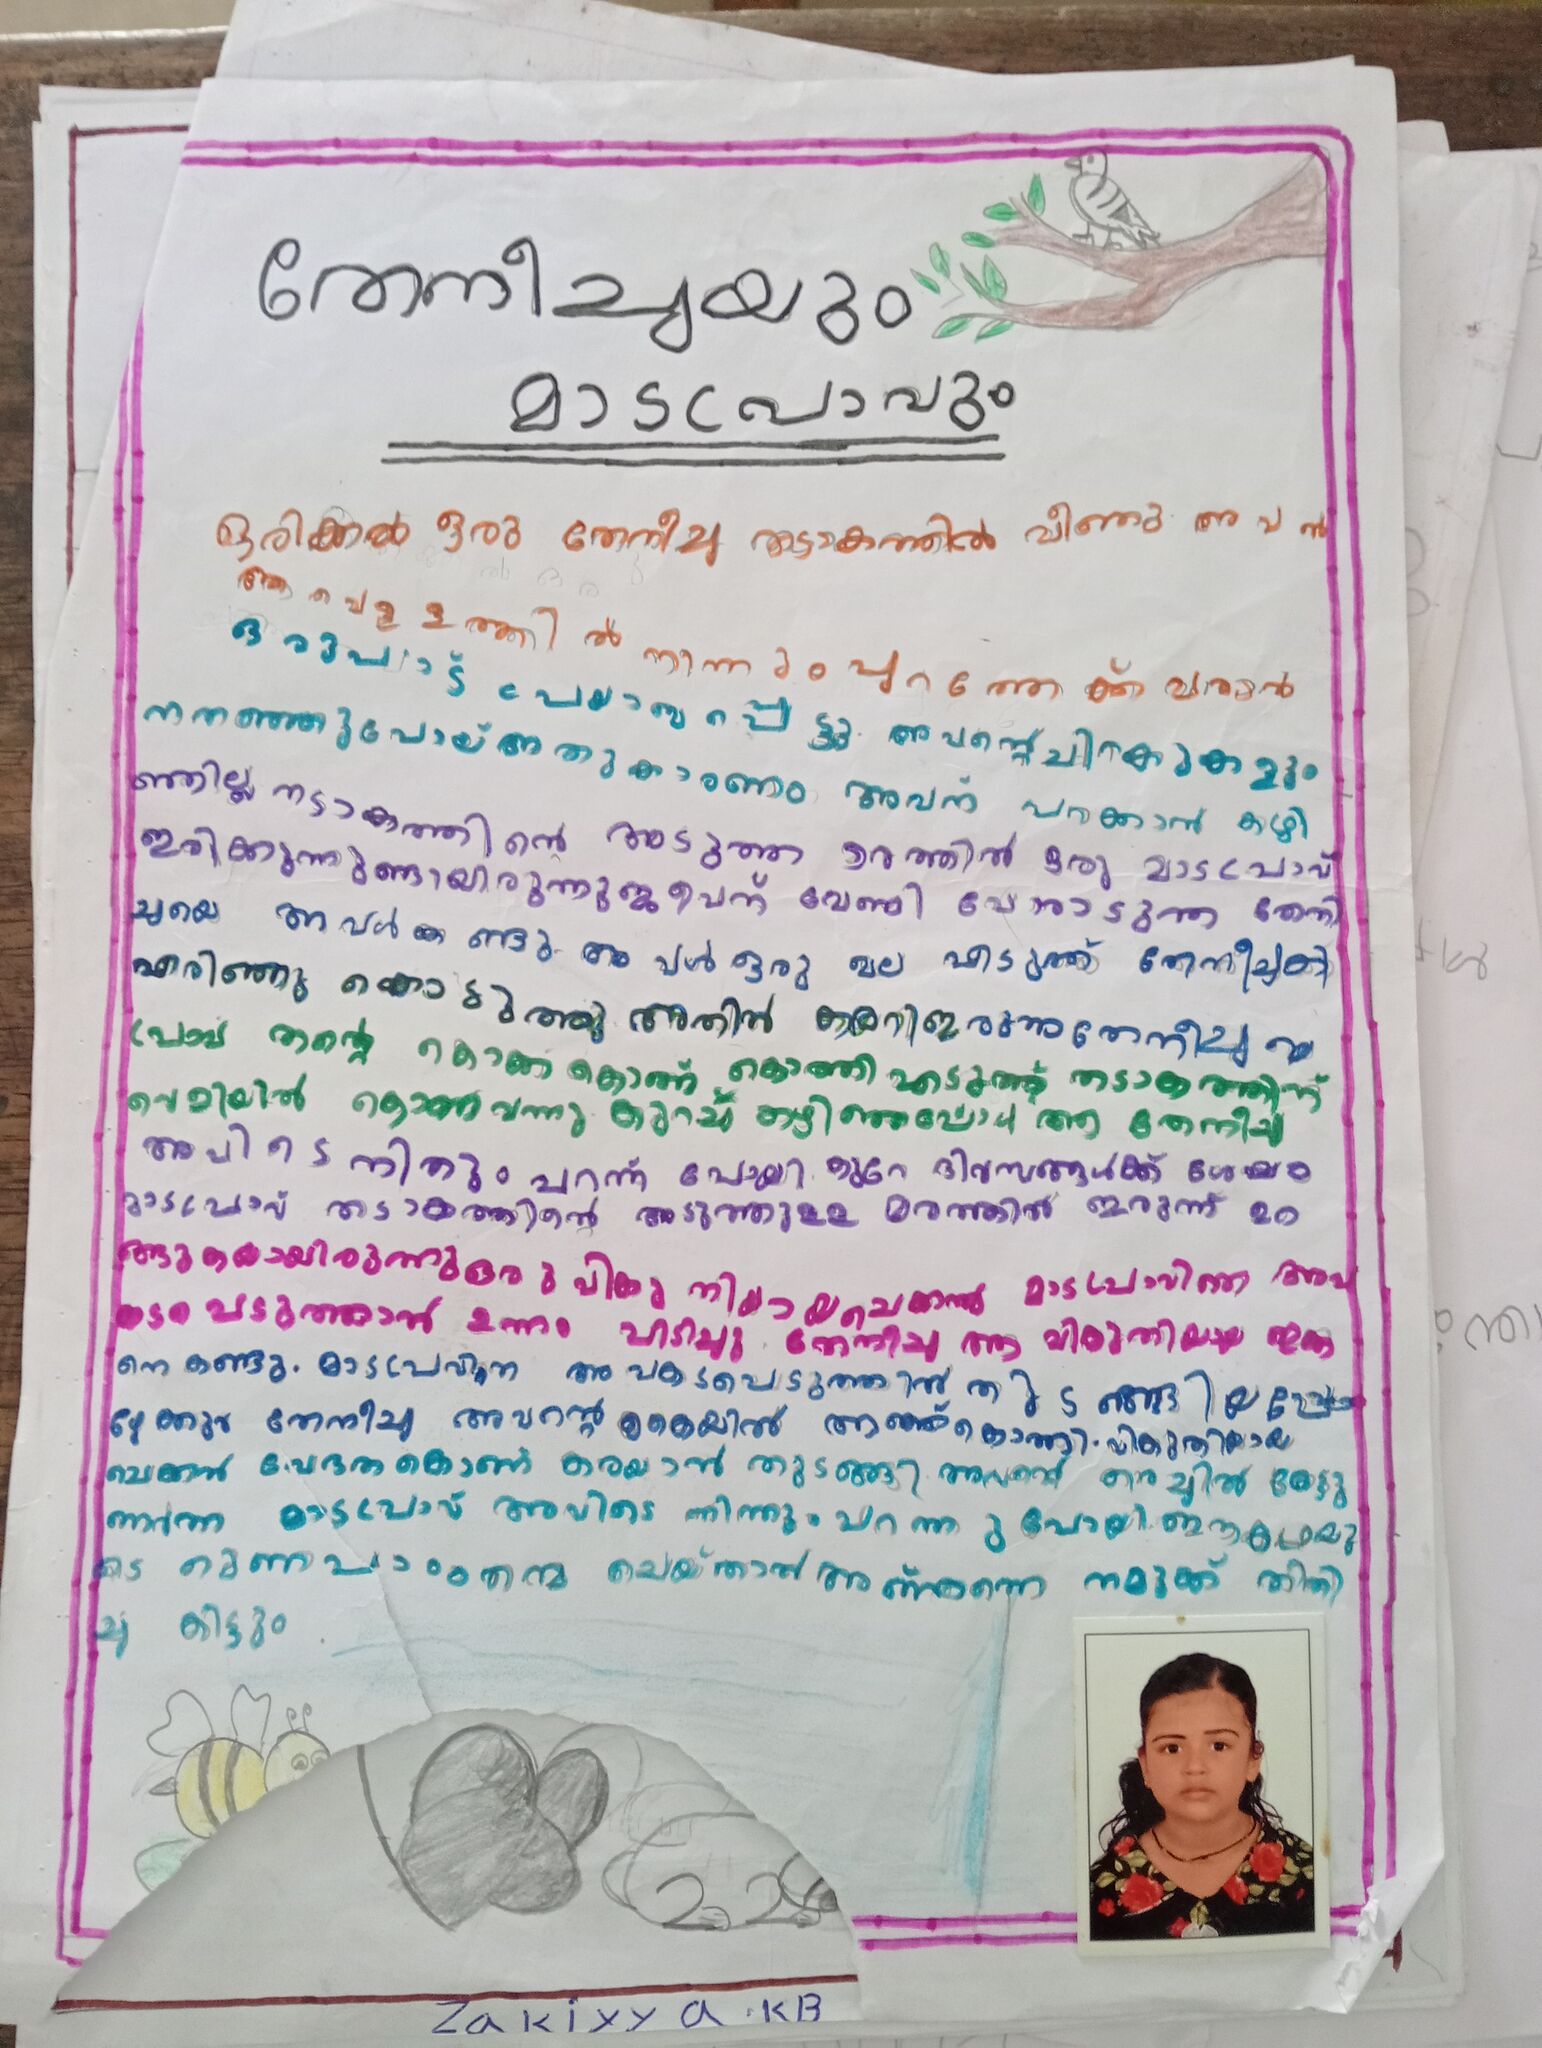 തേനീച്ചയും
മാടപ്രാവും
ഒരിക്കൽ ഒരു തേനീച്ച തടാകത്തിൽ വീണു. അവൻ
ആ വെള്ളത്തിൽ നിന്നും പുറത്തേക്ക് വരാൻ
ഒരുപാട് പ്രയാസപ്പെട്ടു. അവന്റെ ചിറകുകളും
നനഞ്ഞുപോയ് അതുകാരണം അവന് പറക്കാൻ കഴി
ഞ്ഞില്ല തടാകത്തിൻ അടുത്ത മരത്തിൽ ഒരു മാടപ്രാവ്
ഇരിക്കുന്നുണ്ടായിരുന്നു വേണ്ടി പോരാടുന്ന തേനീ
ച്ചയെ അവൾ കണ്ടു. അവൾ ഒരു ഇല എടുത്ത് തേനീച്ചക്ക്
എറിഞ്ഞു കൊടുത്തു അതിൽ കയറി ഇരുന്നു തേനീച്ച
പ്രാവ് തന്റെ കൊക്ക് കൊണ്ട് കൊത്തി എടുത്ത് തടാകത്തിന്
വെളിയിൽ കൊണ്ടുവന്നു. കുറച്ച് കഴിഞ്ഞപ്പോൾ ആ തേനീച്ച
അവിടെ നിന്നും പറന്ന് പോയി. കുറേ ദിവസങ്ങൾക്ക് ശേഷം
മാടപ്രാവ് തടാകത്തിന്റെ അടുത്തുള്ള മരത്തിൽ ഇരുന്ന് ഉറ
ങ്ങുകയായിരുന്നു ഒരു വികൃതിയായ ചെക്കൻ മാടപ്രാവിനെ അപ
കടപ്പെടുത്താൻ ഉന്നം പിടിച്ചു. തേനീച്ച ആ വികൃതിയായ
നെ കണ്ടു. മാടപ്രവിനെ അപകടപെടുത്താൻ തുടങ്ങിയപ്പോ
ഴേക്കും തേനീച്ച അവന്റെ കൈയിൽ ആഞ്ഞ് കൊത്തി. വികൃതിയായ
ചെക്കൻ വേദനകൊണ്ട് കരയാൻ തുടങ്ങി. അവന്റെ കരച്ചിൽ കേട്ടു
ണർന്ന മാടപ്രാവ് അവിടെ നിന്നും പറന്നു പോയി. ഈ കഥയു
ടെ ഗുണപാഠം നന്മ ചെയ്താൽ അത് തന്നെ നമുക്ക് തിരി
ച്ചു കിട്ടും
Zakiyya.KB